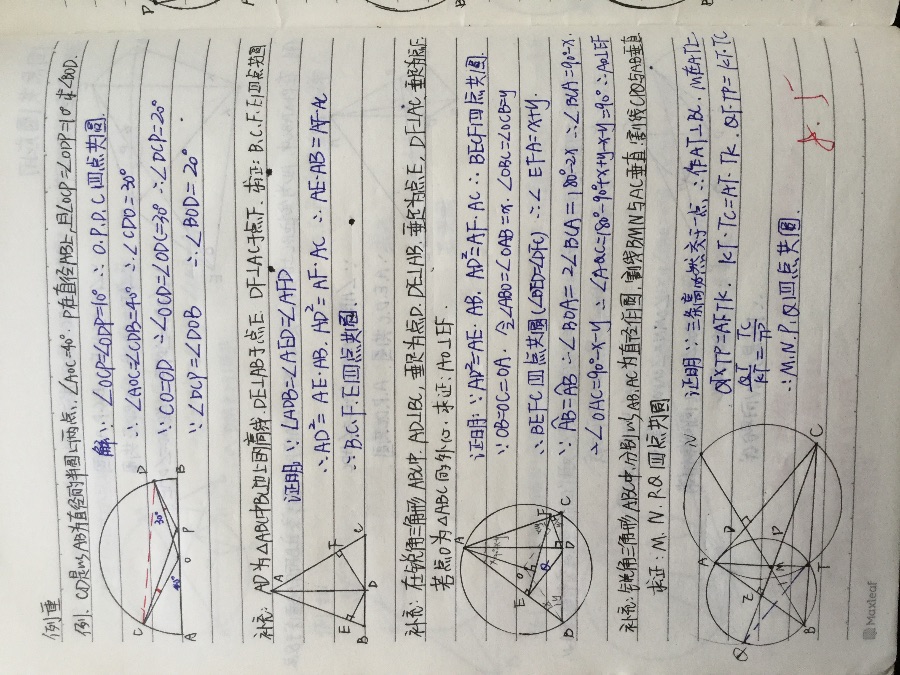 例重
例. CD是以AB为直径的半圆上两点, ∠AOC=40°. P在直径AB上,且∠OCP=∠ODP=10° 求∠BOD.
解: ∵ ∠OCP=∠ODP=10° ∴ O.P.D.C 四点共圆.
∴ ∠AOC=∠CDB=40° ∴ ∠CDO=30°
∵ CO=OD ∴ ∠OCD=∠ODC=30° ∴ ∠DCP=20°
∵ ∠DCP=∠DOB ∴ ∠BOD=20°
C D 30° 40° A O P B
补充: AD为△ABC中BC边上的高线, DE⊥AB于点E. DF⊥AC于点F. 求证: B.C.F.E四点共圆
证明: ∵ ∠ADB=∠AED=∠AFD
∴ AD²=AE·AB. AD²=AF·AC ∴ AE·AB=AF·AC
∴ B.C.F.E四点共圆.
A E F B D C
补充: 在锐角三角形ABC中. AD⊥BC, 垂足为点D. DE⊥AB. 垂足为点E, DF⊥AC, 垂足为点F.
若点O为△ABC的外心. 求证: AO⊥EF.
证明: ∵ AD²=AE·AB, AD²=AF·AC ∴ BECF四点共圆.
∵ OB=OC=OA. 令∠ABO=∠OAB=x. ∠OBC=∠OCB=y
∴ BEFC四点共圆 (∠DEO=∠DFC) ∴ ∠EFA=x+y.
∵ AB=AB ∴ ∠BOA=2∠BCA=180°-2x ∴ ∠BCA=90°-x.
∴ ∠OAC=90°-x-y ∴ ∠AQC=180°-90°+x+y-x-y=90° ∴ AO⊥EF
A E O F Q B D C
补充: 锐角三角形ABC中, 分别以AB, AC为直径作圆, 割线BMN与AC垂直, 割线CPQ与AB垂直
求证: M. N. P. Q 四点共圆
证明: ∵ 三条高必然交于一点, ∴ 作AT⊥BC. M在AT上.
QT×TP=AT·TK. KT·TC=AT·TK. QT·TP=KT·TC
QT/KT=TC/TP
∴ M.N.P.Q四点共圆.
N A D P C M T B Q
8.5
Maxleaf